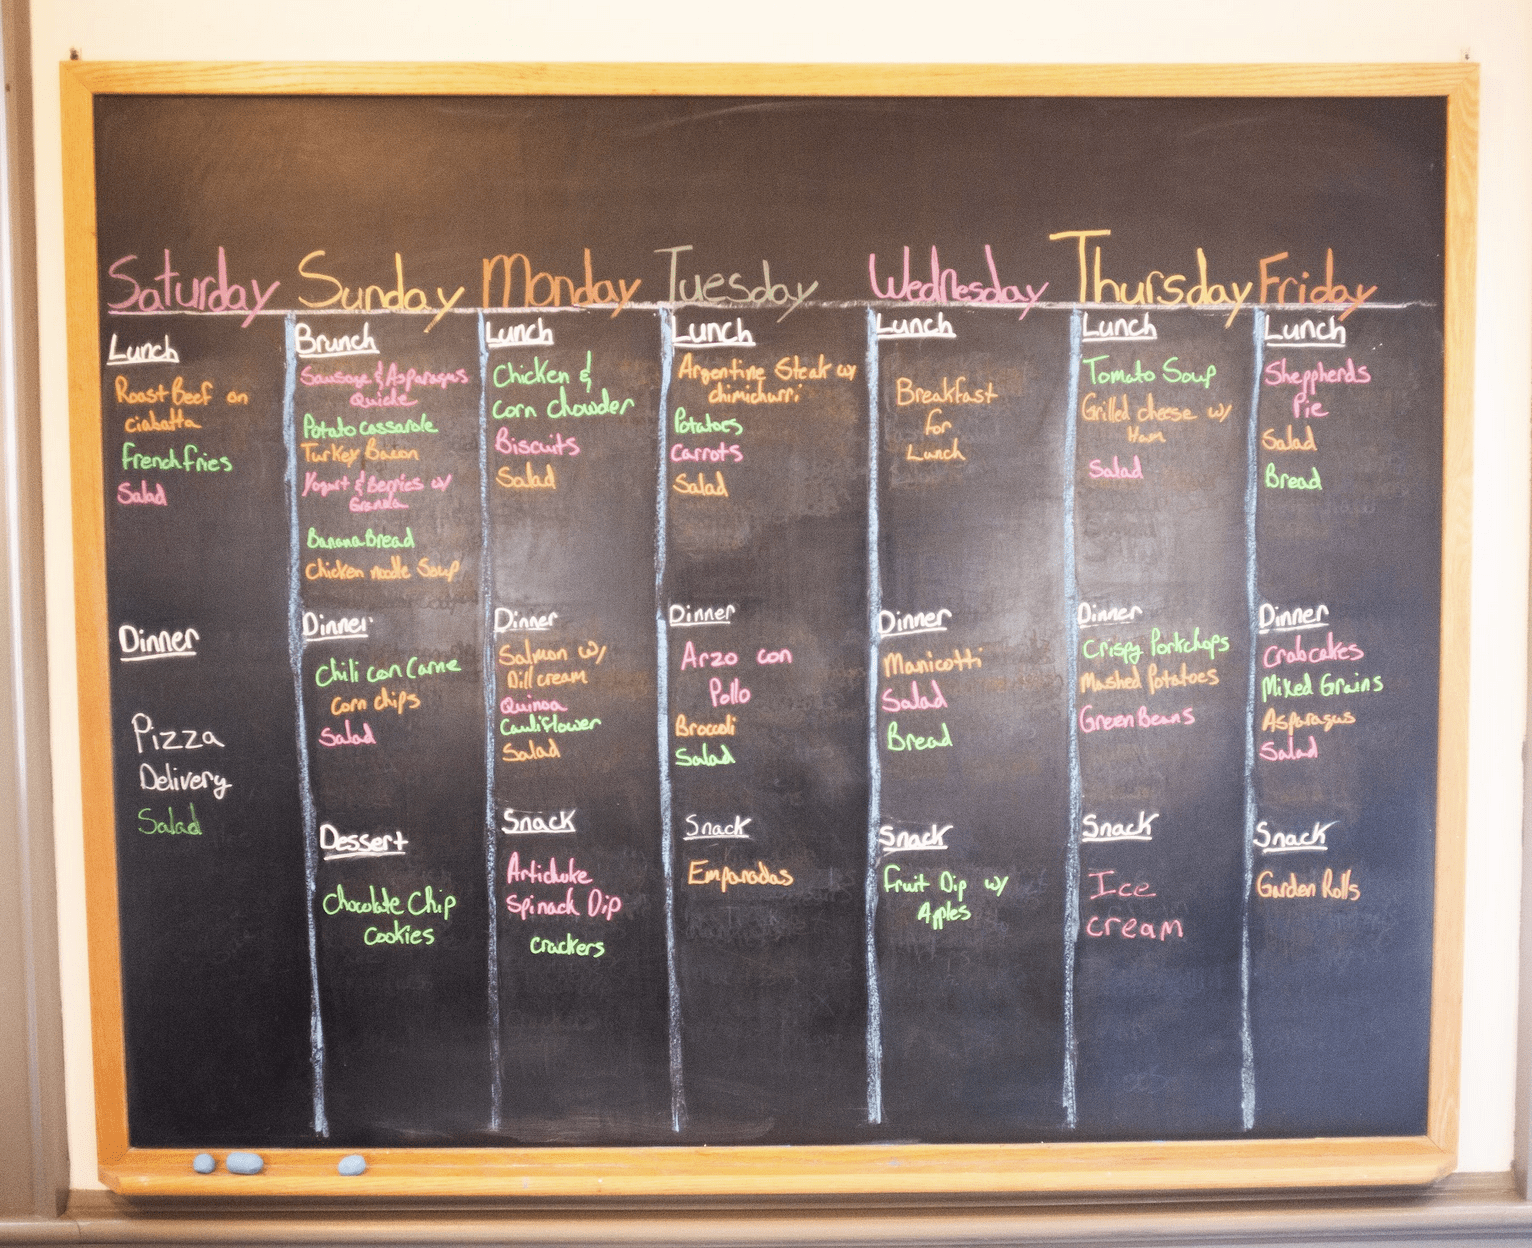 Saturday
Sunday
Monday
Tuesday
Wednesday
Thursday
Friday
Lunch
Roast Beef on
ciabatta
French fries
Salad
Dinner
Pizza
Delivery
Salad
Brunch
Sausage & Asparagus
Quiche
Potato casserole
Turkey Bacon
Yogurt & Berries w/
Granola
Banana Bread
Chicken noodle Soup
Dinner
Chili con Carne
corn chips
Salad
Dessert
Chocolate Chip
Cookies
Lunch
Chicken &
Corn Chowder
Biscuits
Salad
Dinner
Salmon w/
Dill cream
Quinoa
Cauliflower
Salad
Snack
Artichoke
Spinach Dip
crackers
Lunch
Argentine Steak w/
chimichurri
Potatoes
Carrots
Salad
Dinner
Arzo con
Pollo
Broccoli
Salad
Snack
Empanadas
Lunch
Breakfast
for
Lunch
Dinner
Manicotti
Salad
Bread
Snack
Fruit Dip w/
Apples
Lunch
Tomato Soup
Grilled cheese w/
Ham
Salad
Dinner
Crispy Porkchops
Mashed Potatoes
Green Beans
Snack
Ice
cream
Lunch
Sheppherds
Pie
Salad
Bread
Dinner
Crabcakes
Mixed Grains
Asparagus
Salad
Snack
Garden Rolls